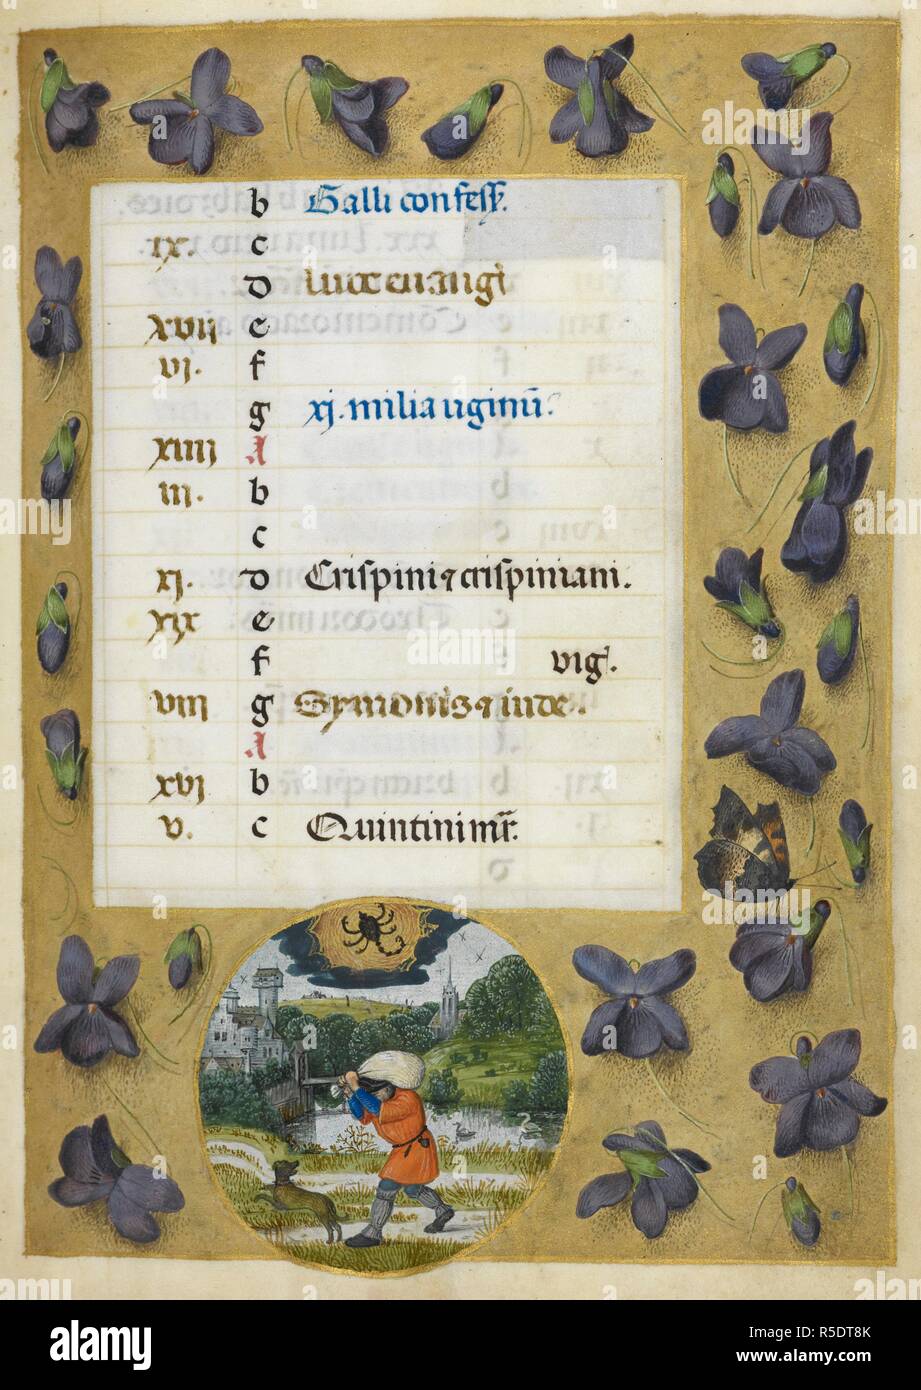 b Galli confess.
ix. c
d Luce euãgł
xvij e
vj. f
g xj. milia uginũ.
xiiij A
iij. b
c
xj. d Crispini ⁊ crispiniani.
xix e
f vig.
viij g Symonis ⁊ iude.
A
xvj b
v. c Quintini mr̃.
alamy
Image ID: R5DT8K
www.alamy.com